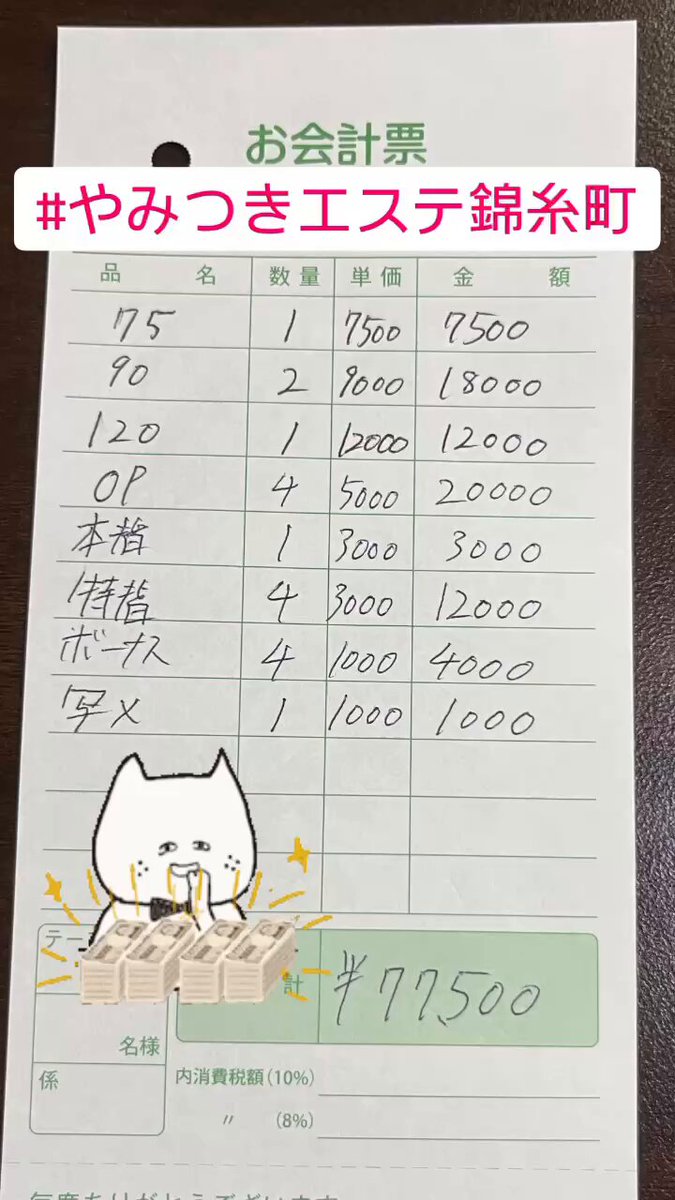 お会計票
#やみつきエステ錦糸町
品名 数量 単価 金額
75 1 7500 7500
90 2 9000 18000
120 1 12000 12000
OP 4 5000 20000
本指 1 3000 3000
特指 4 3000 12000
ボーナス 4 1000 4000
写メ 1 1000 1000
テー
計 ¥77,500
名様
係
内消費税額(10%)
〃 (8%)